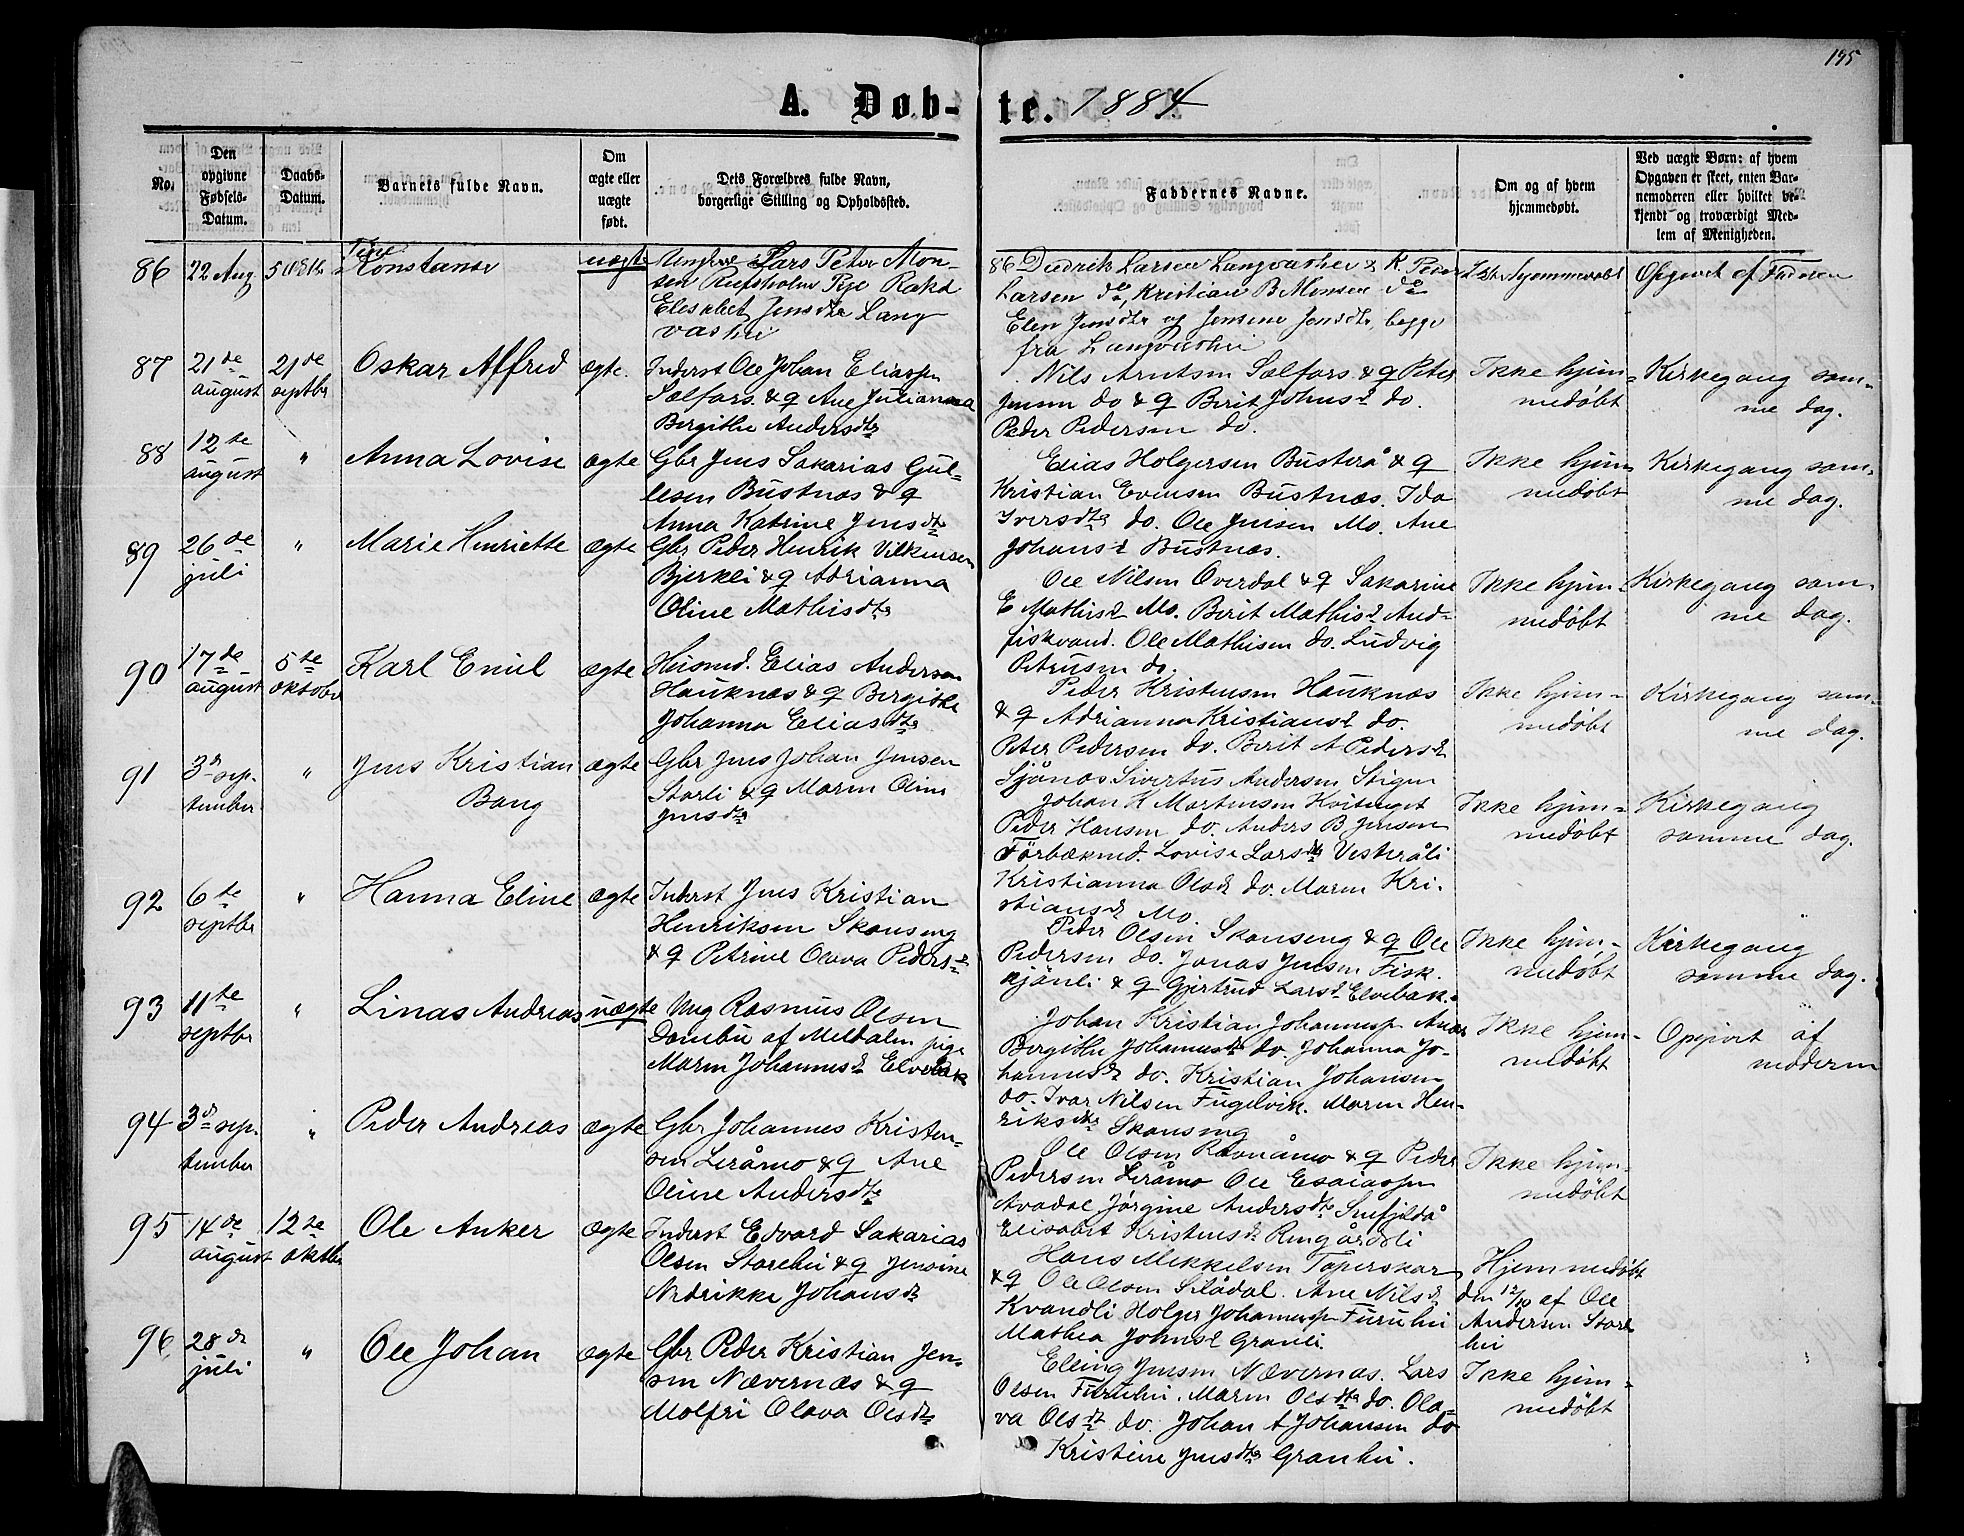 195
A. Døb-te. 1884.
No.
Den opgivne Fødsels-Datum.
Daabs-Datum.
Barnets fulde Navn.
Om ægte eller uægte født.
Dets Forældres fulde Navn, borgerlige Stilling og Opholdssted.
Faddernes Navne.
Om og af hvem hjemmedøbt.
Ved uægte Børn: af hvem Opgaven er skeet, enten Barnemoderen eller hvilket bekjendt og troværdigt Medlem af Menigheden.
86
22 Aug
Tine
Konstanse
uægte
Ungkarl Lars Peter Mon-
sen Pige
Elesabet Jensdtr Lang
vashei
86 Diedrik Larsen Langvashei & K. Peder
Larsen do, Kristian B Monsen do
Elen Jensdtr og Jensine Jensdtr, begge
fra Langvashei
Opgivet af Faderen
87
21de
august
21de
septbr
Oskar Alfred
ægte.
Inderst Ole Johan Eliassen
Selfors & q Ane Julianna
Birgithe Andersdtr
Nils Arntsen Selfors & q Peter
Jensen do & q Berit Johnsd do.
Peder Pedersen do.
Ikke hjem-
medøbt
Kirkegang sam-
me dag.
88
12te
august
"
Anna Lovise
ægte
Gbr Jens Sakarias Gul-
lesen Bustnes & q
Anna Katrine Jensdtr
Elias Holgersen Busterå & q
Kristian Evensen Bustnæs. Ida
Iversdtr do. Ole Jensen Mo. Ane
Johansd Bustnæs.
Ikke hjem
medøbt
Kirkegang sam-
me dag.
89
26de
juli
"
Marie Henriette
ægte
Gbr Peder Henrik Vilkensen
Bjerkli & q Adrianna
Oline Mathisdtr
Ole Nilsen Överdal & q Sakarine
E Mathisd Mo. Berit Mathisd And-
fiskvand. Ole Mathisen do. Ludvig
Petrusen do.
Ikke hjem-
medøbt
Kirkegang sam-
me dag.
90
17de
august
5te
oktober
Karl Emil
ægte
Husmd. Elias Andersen
Hauknæs & q Bergithe
Johanna Eliasdtr
Peder Kristensen Hauknæs
& q Adrianna Kristiansd do.
Peter Pedersen do. Berit A Pedersd
Sjånes Sivertus Andersen Stigen
Ikke hjem-
medøbt
Kirkegang sam-
me dag.
91
3d sep-
tember
"
Jens Kristian
Bang
ægte
Gbr Jens Johan Jensen
Storli & q Maren Oline
Jensdtr
Johan K Martinsen Kvitneget
Peder Hansen do. Anders B Jensen
Förbækmd. Lovise Larsdtr Vesteråli
Kristianna Olsd do. Maren Kri-
stiansd Mo.
Ikke hjem-
medøbt
Kirkegang
samme dag.
92
6te
septbr
"
Hanna Eline
ægte
Inderst Jens Kristian
Henriksen Skonseng
& q Petrine Olava Pedersd
Peder Olsen Skonseng & q Ole
Pedersen do. Jonas Jensen Fisk-
kjönli & q Gjertrud Larsd Elvebak.
Ikke hjem-
medøbt
Kirkegang
samme dag.
93
11te
septbr
"
Linas Andreas
uægte
Ung Rasmus Olsen
Dombu af Meldalen pige
Maren Johannesd Elvebak
Johan Kristian Johannessen
Bergithe Johannesdtr do. Johanna Jo-
hannesd do. Kristian Johansen
do. Ivar Nilsen Fugelvik. Maren Hen-
riksdtr Skonseng
Ikke hjem-
medøbt
Opgivet af
moderen
94
3d sep-
tember
"
Peder Andreas
ægte
Gbr Johannes Kristen-
sen Leråmo & q Ane
Oline Andersdtr
Ole Olsen Ravnåmo & q Peder
Pedersen Leråmo Ole Esaiassen
Avadal Jørgine Andersdtr Snefjeldå
Elisabet Kristensd Ringårdsli
Ikke hjem-
medøbt
95
14de
august
12te
oktbr
Ole Anker
ægte
Inderst Edvard Sakarias
Olsen Storehei & q Jensine
Nedrikke Johansd
Hans Mikkelsen Toperskar
& q Ole Olsen Silådal. Ane Nilsd
Kvandli Holger Johannessen Furuhei
Mathea Johnsd Granli
Hjemmedøbt
den 12/10 af Ole
Andersen Store
hei
96
28de
juli
"
Ole Johan
ægte
Gbr Peder Kristian Jen-
sen Nævernæs & q
Molfri Olava Olsdtr
Elling Jensen Nævernæs. Lars
Olsen Furuhei. Maren Olsdtr do. Ola-
va Olsdt do. Johan A Johansen do
Kristine Jensdtr Granhei.
Ikke hjem-
medøbt